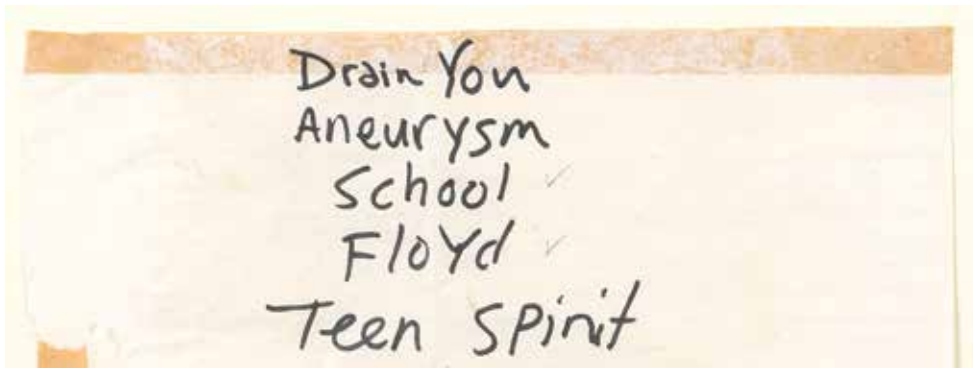 Drain You
Aneurysm
School ✓
Floyd ✓
Teen Spirit